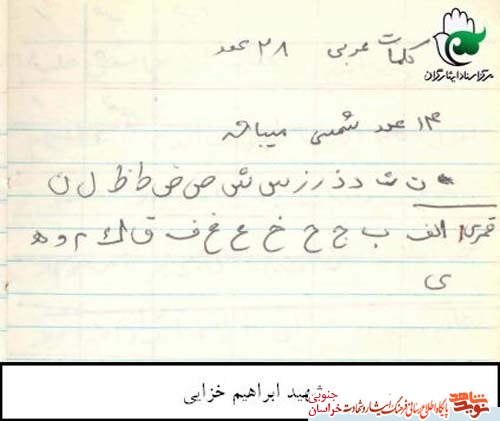 مرکز اسناد ایثارگران
کلمات عربی ۲۸ عدد
۱۴ عدد شمسی میباشد
ت ث د ذ ر ز س ش ص ض ط ظ ل ن
قمری الف ب ج ح خ ع غ ف ق ك م و ه
ی
شهید ابراهیم خزایی
نوید شاهد
پایگاه اطلاع رسانی فرهنگ ایثار و شهادت خراسان جنوبی